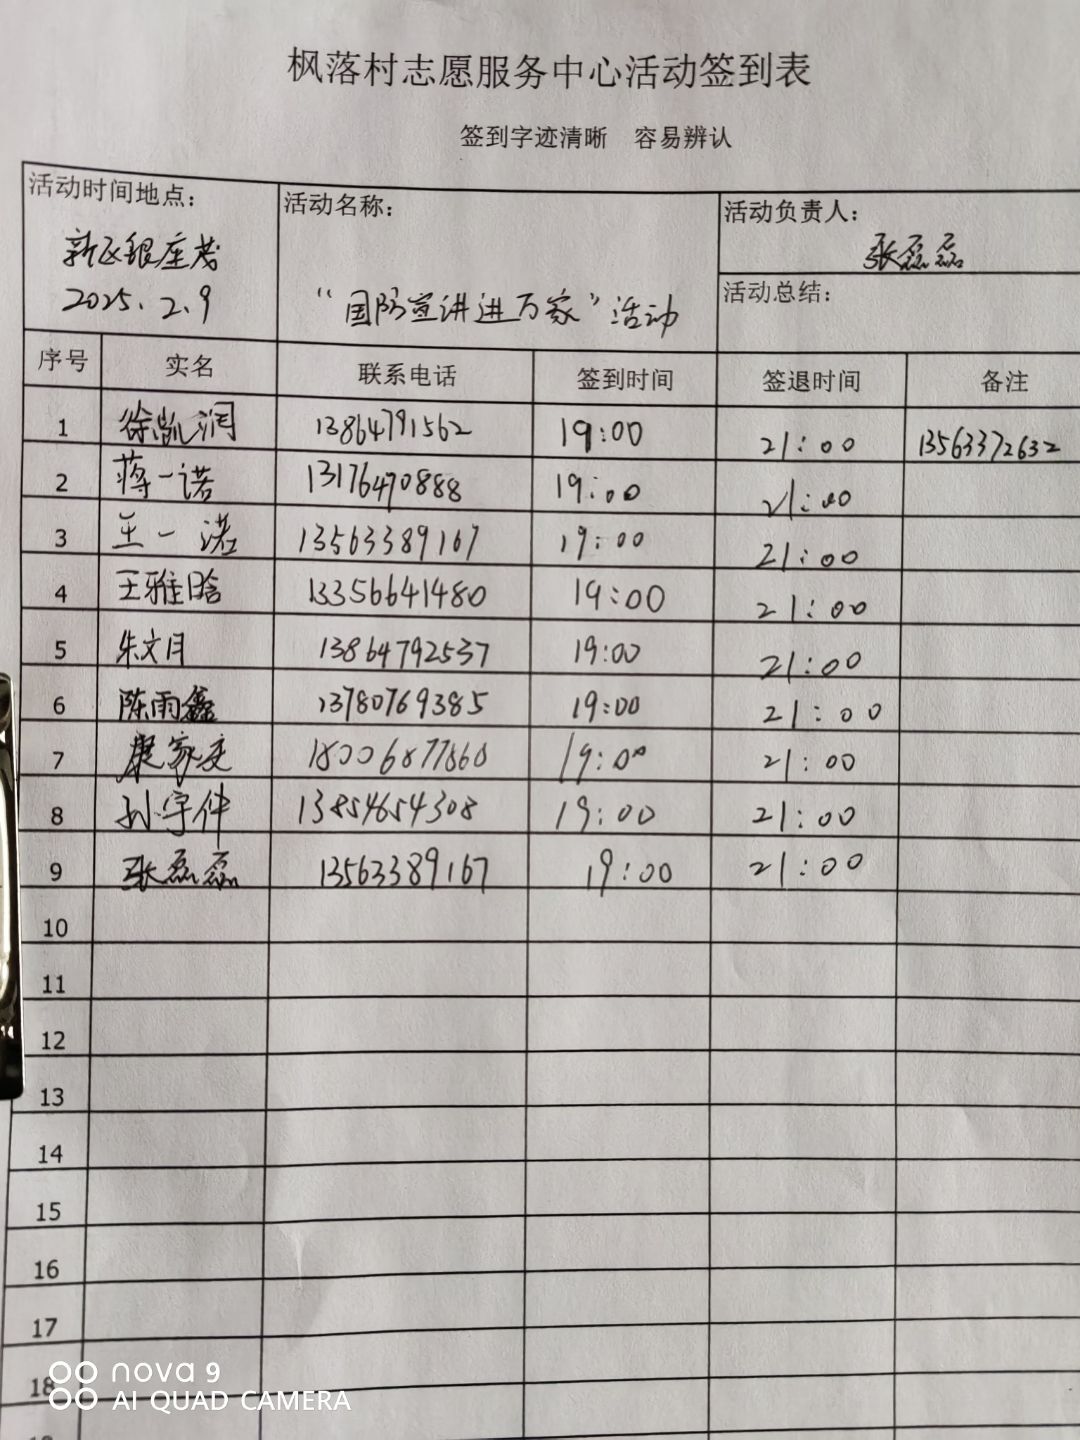 枫落村志愿服务中心活动签到表
签到字迹清晰 容易辨认
活动时间地点： 活动名称： 活动负责人：
新区银座茂 张磊磊
2025.2.9 “国防宣讲进万家”活动 活动总结：
序号 实名 联系电话 签到时间 签退时间 备注
1 徐凯润 13864791562 19:00 21:00 13563372632
2 蒋一诺 13176470888 19:00 21:00
3 王一诺 13563389167 19:00 21:00
4 王雅晗 13356641480 19:00 21:00
5 朱文月 13864792537 19:00 21:00
6 陈雨鑫 13780769385 19:00 21:00
7 康家 18006877860 19:00 21:00
8 孙宇 13854654308 19:00 21:00
9 张磊磊 13563389167 19:00 21:00
10
11
12
13
14
15
16
17
18
nova 9
AI QUAD CAMERA